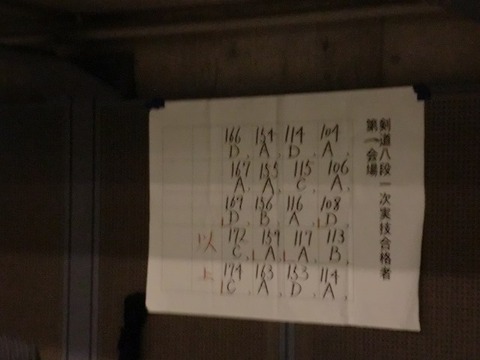 剣道八段一次実技合格者
第一会場
104A
106A
108D
113B
114A
114D
115C
116A
117A
153D
154A
155A
156B
159A
163A
166D
167A
169D
172C
174C
以上